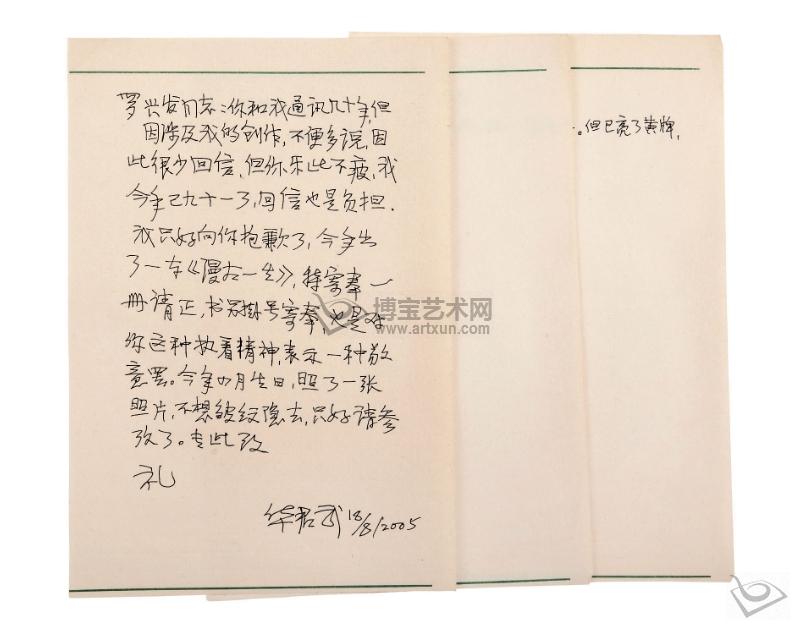 罗兴发同志:你和我通讯几十年,但
因涉及我的创作,不便多说,因
此很少回信,但你乐此不疲,我
今年已九十一了,回信也是负担.
我只好向你抱歉了,今年出
了一本《漫画一生》,特寄奉一
册请正,书另掛号寄奉,也是对
你这种执着精神,表示一种敬
意罢。今年四月生日,照了一张
照片,不想皱纹隐去,只好请参
攷了。专此致
礼
华君武 18/8/2005
。但已亮了黄牌,
博宝艺术网
www.artxun.com